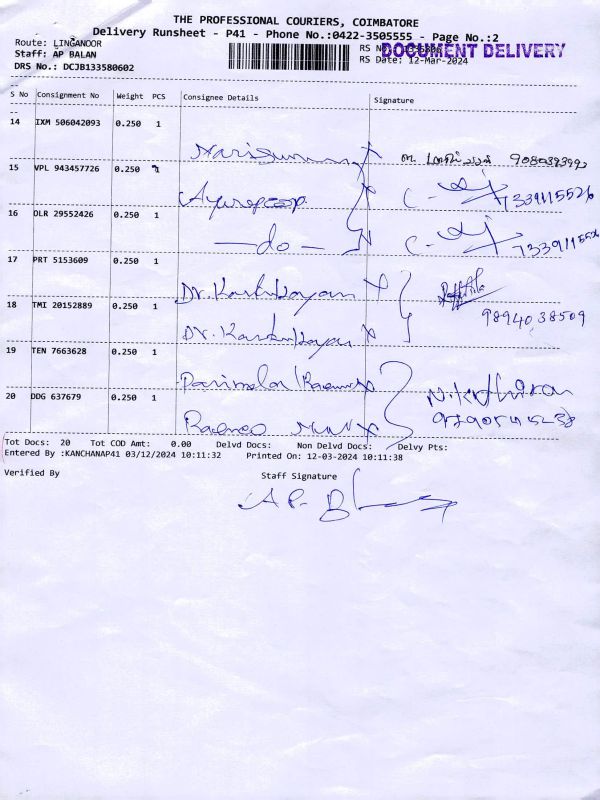 THE PROFESSIONAL COURIERS, COIMBATORE
Delivery Runsheet - P41 - Phone No.:0422-3505555 - Page No.:2
Route: LINGANOOR
RS No
DOCUMENT DELIVERY
Staff: AP BALAN
RS Date: 12-Mar-2024
DRS No.: DCJB133580602
S No Consignment No Weight PCS Consignee Details Signature
14 IXM 506042093 0.250 1
15 VPL 943457726 0.250 1
16 DLR 29552426 0.250 1
C- 7339115526
—do—
C- 7339115526
17 PRT 5153609 0.250 1
Dr. Karthikayan
18 TMI 20152889 0.250 1
9894038509
Dr. Karthikayan
19 TEN 7663628 0.250 1
20 DDG 637679 0.250 1
Tot Docs: 20 Tot COD Amt: 0.00 Delvd Docs: Non Delvd Docs: Delvy Pts:
Entered By :KANCHANAP41 03/12/2024 10:11:32 Printed On: 12-03-2024 10:11:38
Verified By Staff Signature
A P.